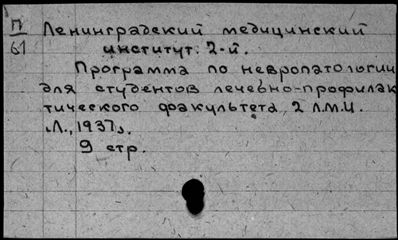 П
61
Ленинградский медицинский
институт. 2-й.
Программа по невропатологии
для студентов лечебно-профилак
тического факультета, 2 Л.М.И.
Л., 1937г.
9 стр.